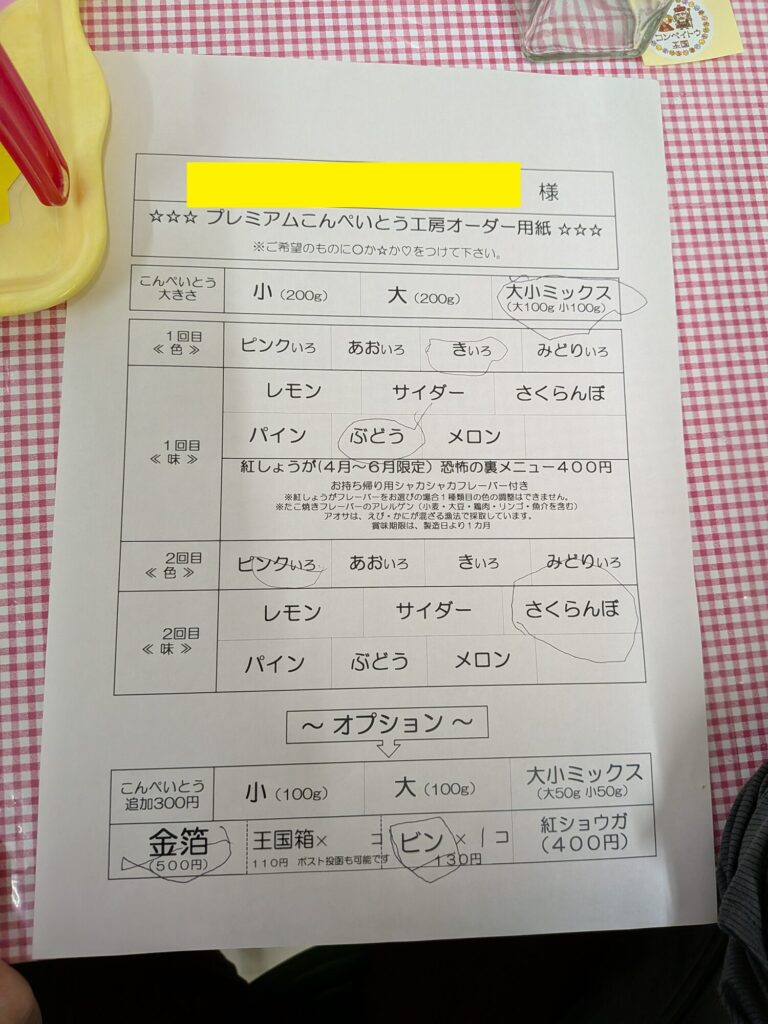 コンペイトウ
王国
様
☆☆☆ プレミアムこんぺいとう工房オーダー用紙 ☆☆☆
※ご希望のものに〇か☆か♡をつけて下さい。
こんぺいとう
大きさ
小（200g）
大（200g）
大小ミックス
（大100g 小100g）
1回目
≪ 色 ≫
ピンクいろ
あおいろ
きいろ
みどりいろ
1回目
≪ 味 ≫
レモン
サイダー
さくらんぼ
パイン
ぶどう
メロン
紅しょうが(４月～６月限定）恐怖の裏メニュー４００円
お持ち帰り用シャカシャカフレーバー付き
※紅しょうがフレーバーをお選びの場合１種類目の色の調整はできません。
※たこ焼きフレーバーのアレルゲン（小麦・大豆・鶏肉・リンゴ・魚介を含む）
アオサは、えび・かにが混ざる漁法で採取しています。
賞味期限は、製造日より１カ月
2回目
≪ 色 ≫
ピンクいろ
あおいろ
きいろ
みどりいろ
2回目
≪ 味 ≫
レモン
サイダー
さくらんぼ
パイン
ぶどう
メロン
～ オプション ～
こんぺいとう
追加300円
小（100g）
大（100g）
大小ミックス
（大50g 小50g）
金箔
（500円）
王国箱× コ
１１０円 ポスト投函も可能です
ビン × 1 コ
１３０円
紅ショウガ
（４００円）